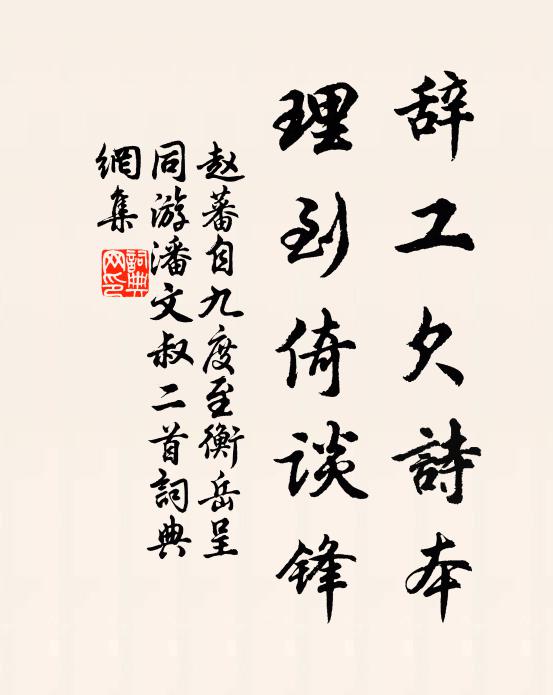 辞工欠詩本
理到倚谈锋
赵蕃自九度至衡岳呈
同游潘文叔二首詞典
網集
詞典网印